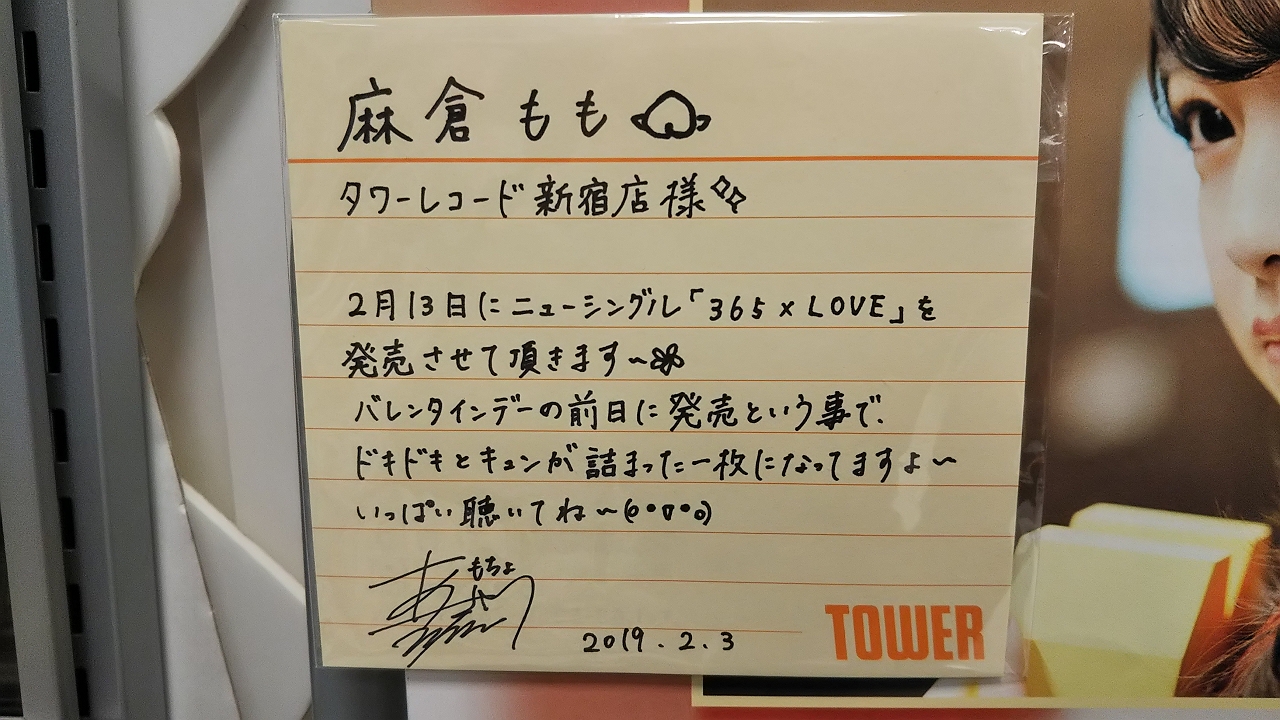 麻倉もも
タワーレコード新宿店様
2月13日にニューシングル「365×LOVE」を
発売させて頂きます~
バレンタインデーの前日に発売という事で、
ドキドキとキュンが詰まった一枚になってますよ~
いっぱい聴いてね~(o・▽・o)
もちょ
2019.2.3
TOWER